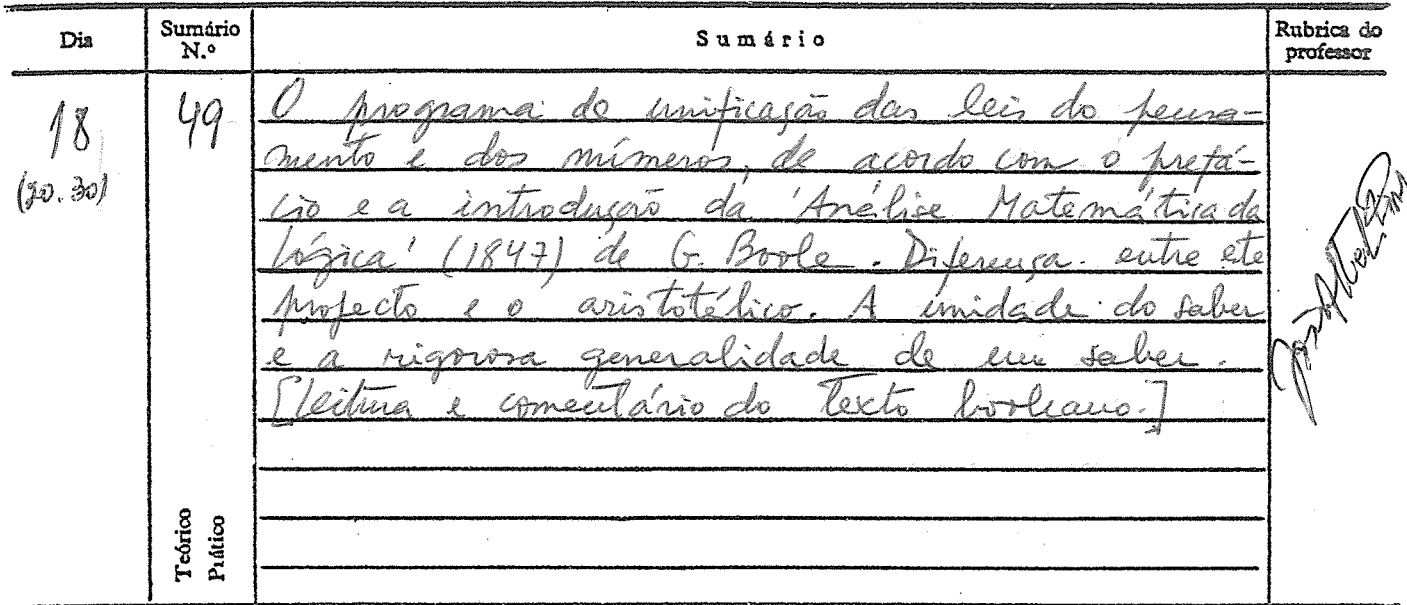 Dia Sumário N.º Sumário Rubrica do professor
18 49 O programa de unificação das leis do pensa-
mento e dos números, de acordo com o prefá-
(20.30) cio e a introdução da 'Análise Matemática da
Lógica' (1847) de G. Boole. Diferença entre este
projecto e o aristotélico. A unidade do saber
e a rigorosa generalidade de um saber.
[Leitura e comentário do texto booleano.]
Teórico
Prático